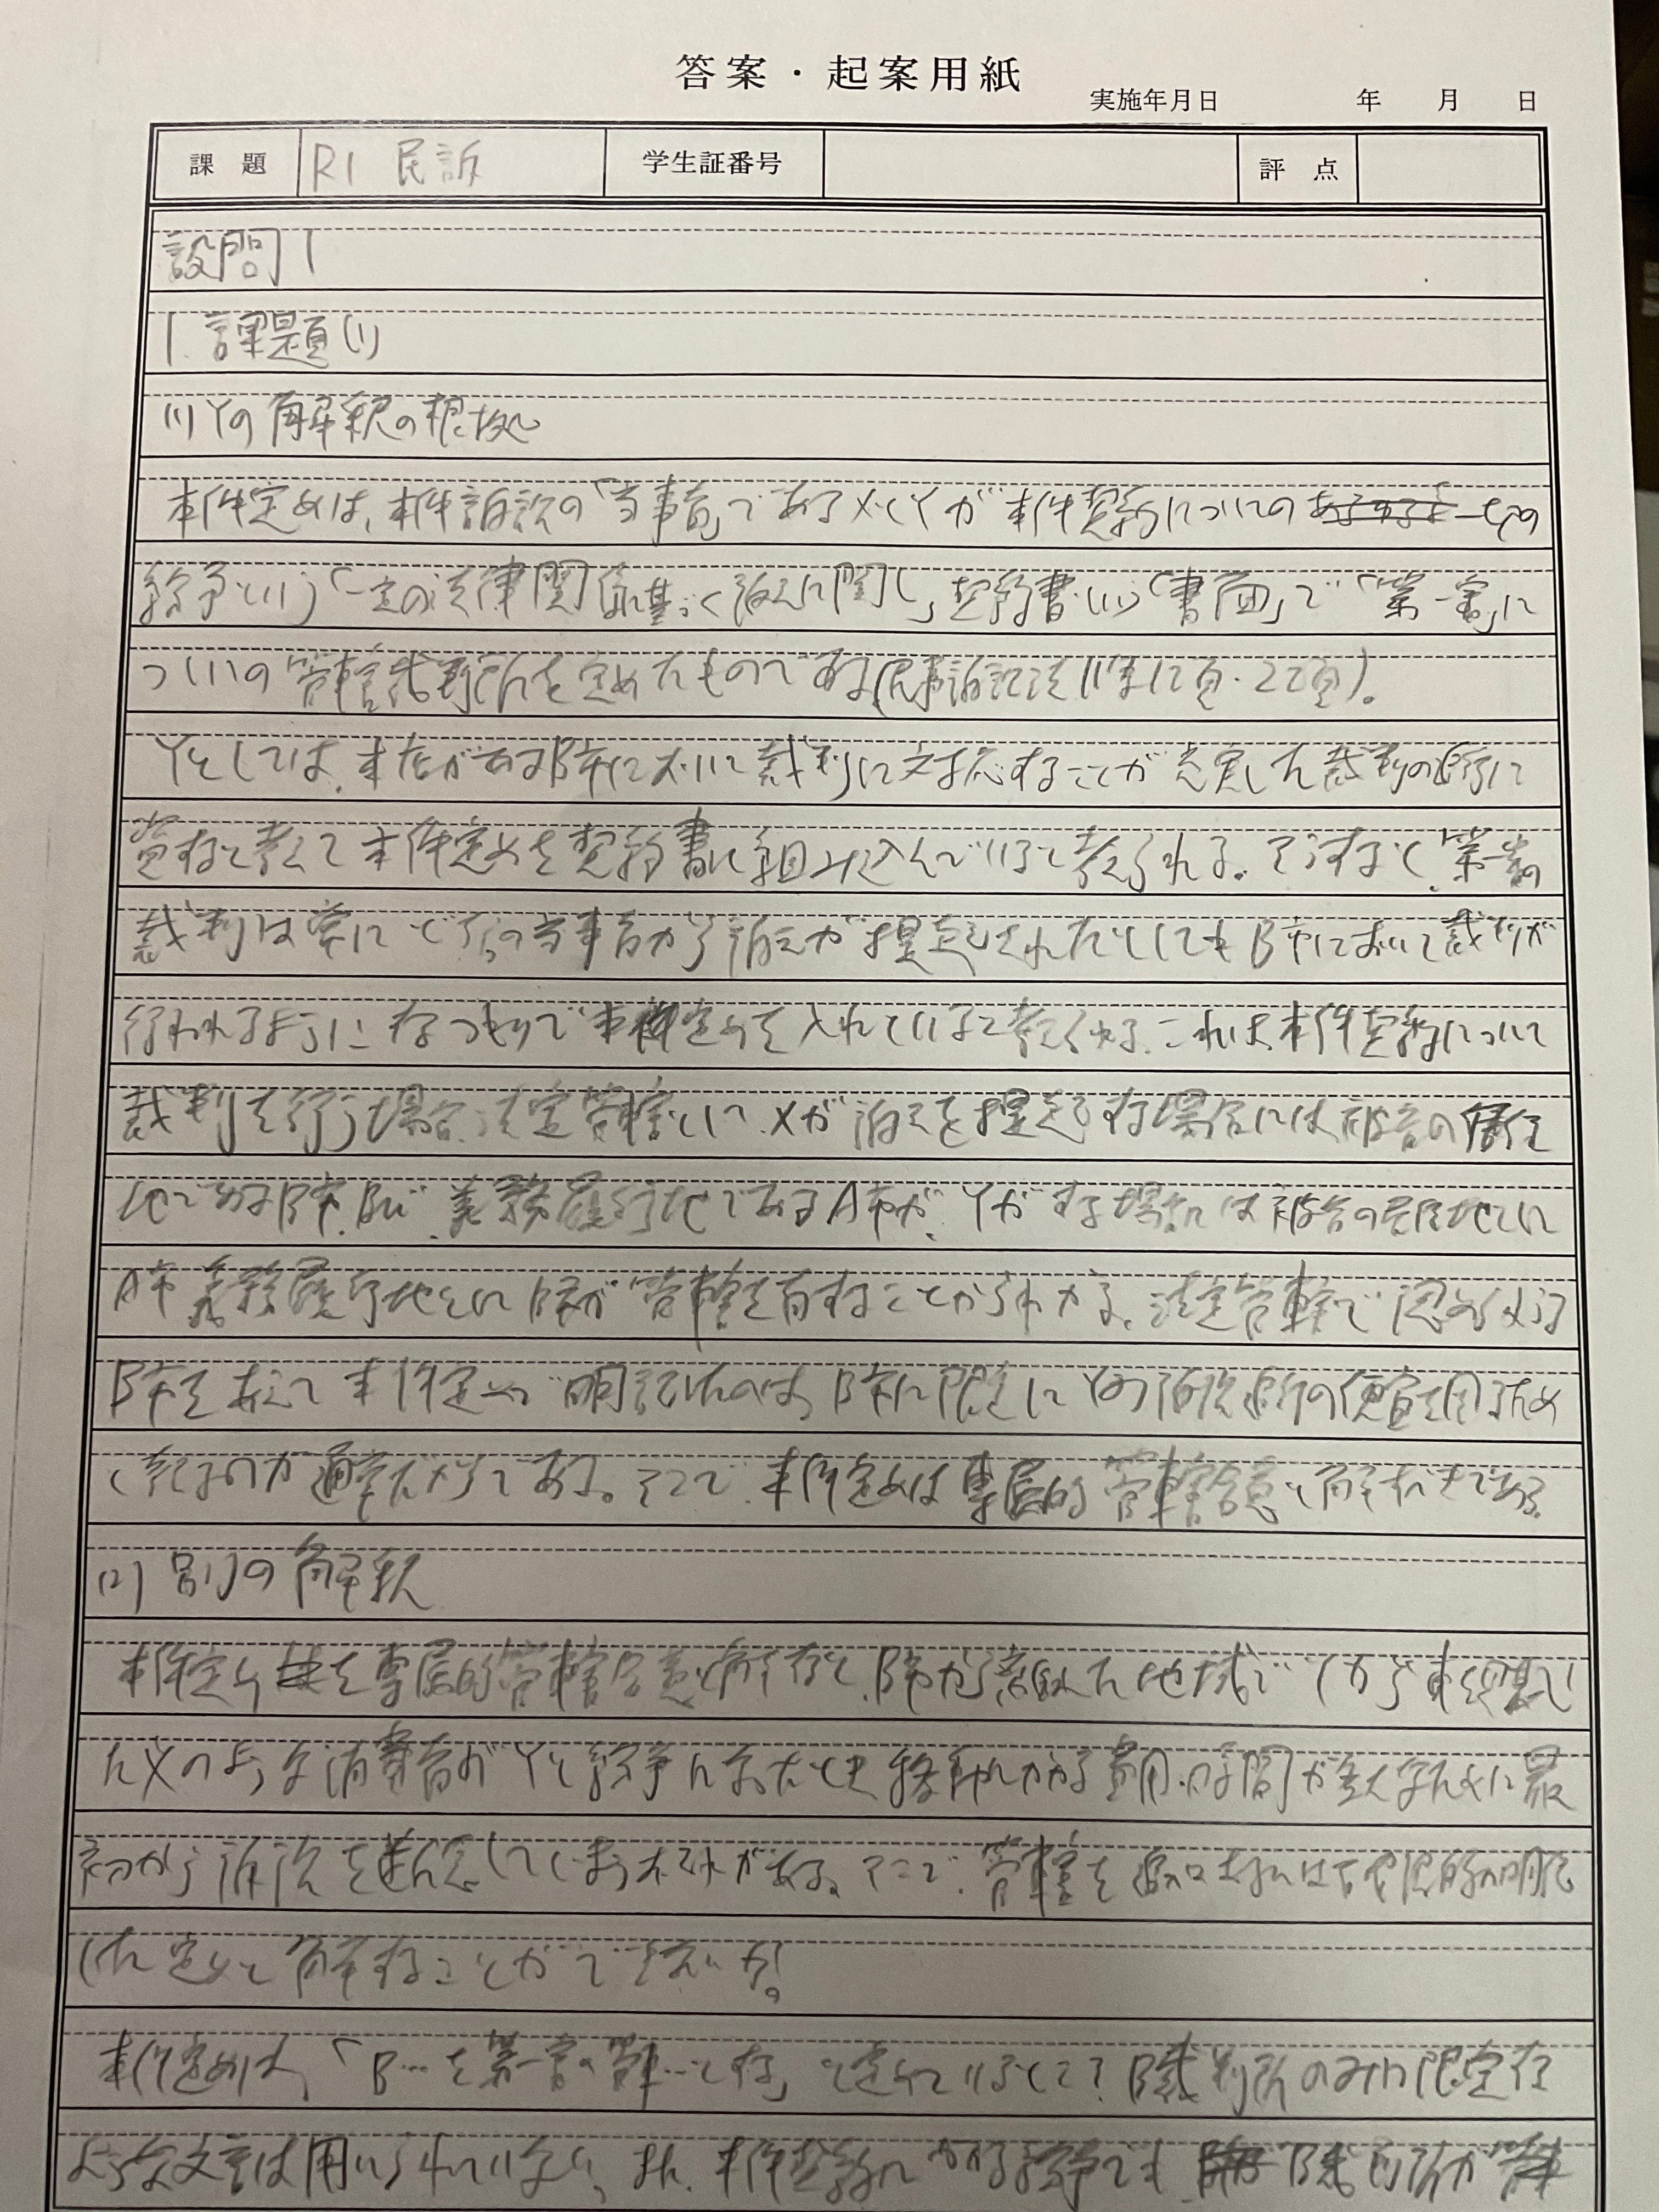 答案・起案用紙
実施年月日 年 月 日
課題 R1 民訴 学生証番号 評点
設問1
1. 課題(1)
(1) Yの解釈の根拠
本件定めは、本件訴訟の「当事者」であるXとYが本件契約についての一切の
紛争という「一定の法律関係に基づく訴えに関し」契約書という「書面」で「第一審」に
ついての管轄裁判所を定めたものである(民事訴訟法11条1項・2項)。
Yとしては、本店があるB市において裁判に対応することが充実した裁判の進行に
資すると考えて本件定めを契約書に組み込んでいると考えられる。そうすると、第一審の
裁判は常にどちらの当事者から訴えが提起されたとしてもB市において裁判が
行われるようになるつもりで本件定めを入れていると考えられる。これは、本件契約について
裁判を行う場合、法定管轄として、Xが訴えを提起する場合には被告の居住
地であるB市、及び、義務履行地であるA市が、Yがする場合には被告の居住地として
A市、義務履行地としてB市が管轄を有することからわかる。法定管轄で認められる
B市をあえて本件定めで明記したのは、B市に限定してYの訴訟進行の便宜を図るため
と考えるのが通常だからである。そこで、本件定めは専属的管轄合意と解すべきである。
(2) 別の解釈
本件定めを専属的管轄合意と解すると、B市から離れた地域でYから車を購入し
たXのような消費者がYと紛争になったとき移動にかかる費用・時間が多大なために最
初から訴訟を断念してしまうおそれがある。そこで、管轄を
した定めと解することができないか。
本件定めは、「B…を第一審の管…とする」と定めているところ、B裁判所のみに限定する
ような文言は用いられていない。また、本件契約にかかる紛争でも B裁判所が管轄